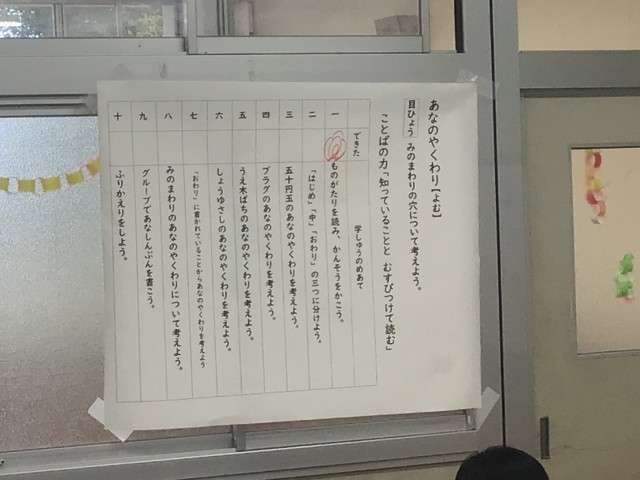 あなのやくわり【よむ】
目ひょう みのまわりの穴について考えよう。
ことばの力「知っていることと むすびつけて読む」
できた 学しゅうのめあて
一 ものがたりを読み、かんそうをかこう。
二 「はじめ」「中」「おわり」の三つに分けよう。
三 五十円玉のあなのやくわりを考えよう。
四 プラグのあなのやくわりを考えよう。
五 うえ木ばちのあなのやくわりを考えよう。
六 しょうゆさしのあなのやくわりを考えよう。
七 「おわり」に書かれていることからあなのやくわりを考えよう
八 みのまわりのあなのやくわりについて考えよう。
九 グループであなしんぶんを書こう。
十 ふりかえりをしよう。